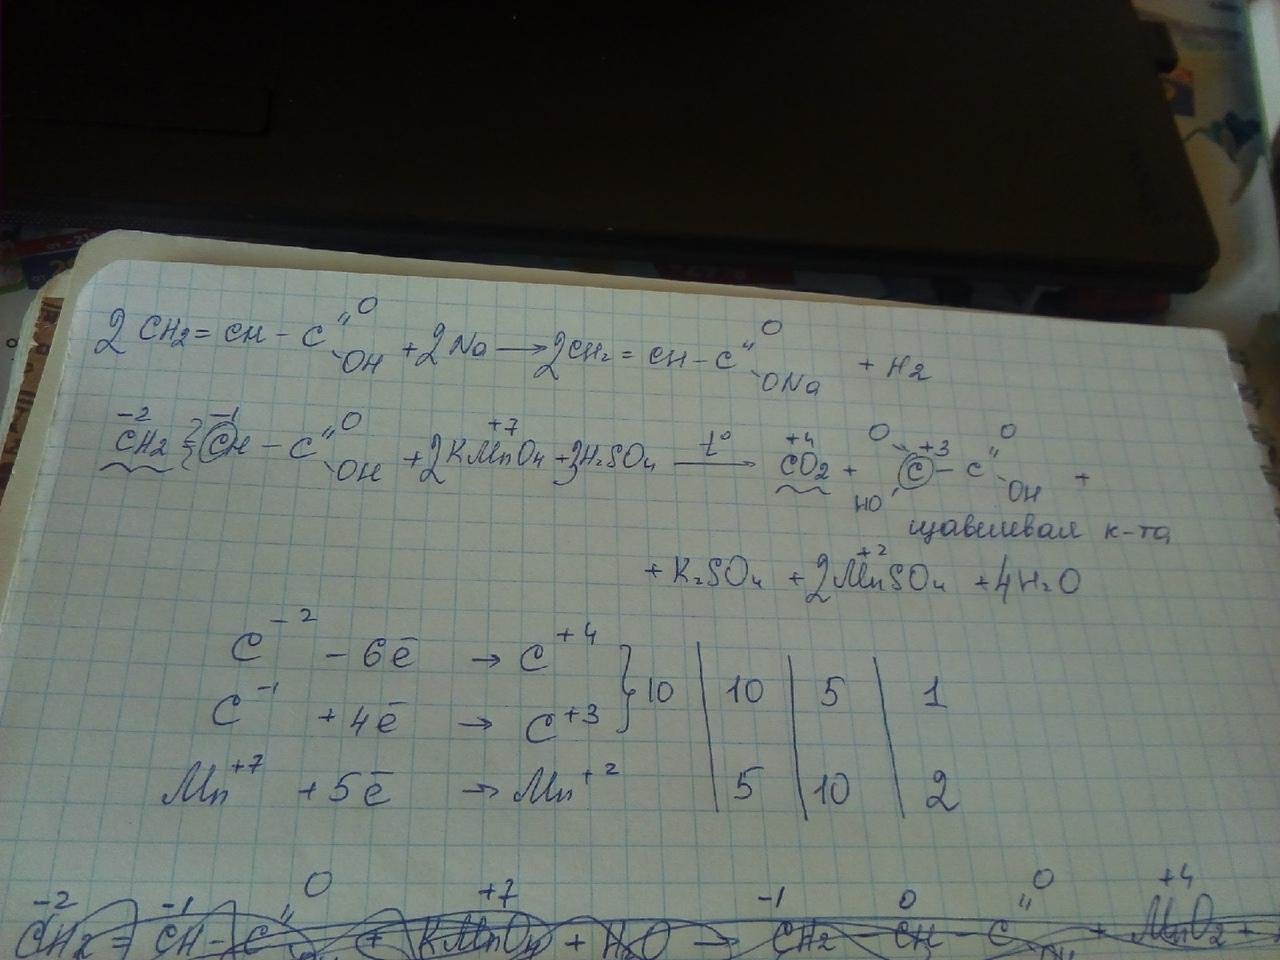 2CH₂=CH-C(=O)OH + 2Na → 2CH₂=CH-C(=O)ONa + H₂
CH₂⁻²=CH⁻¹-C(=O)OH + 2KMn⁺⁷O₄ + 3H₂SO₄ t° → C⁺⁴O₂ + HO-C⁺³(=O)-C(=O)OH +
щавелевая к-та
+ K₂SO₄ + 2Mn⁺²SO₄ + 4H₂O
C⁻² - 6ē → C⁺⁴
C⁻¹ + 4ē → C⁺³ } 10 | 10 | 5 | 1
Mn⁺⁷ + 5ē → Mn⁺² | 5 | 10 | 2
CH₂⁻²=CH⁻¹-C(=O) + KMn⁺⁷O₄ + H₂O → CH₂⁻¹-CH⁰-C(=O) + Mn⁺⁴O₂ +